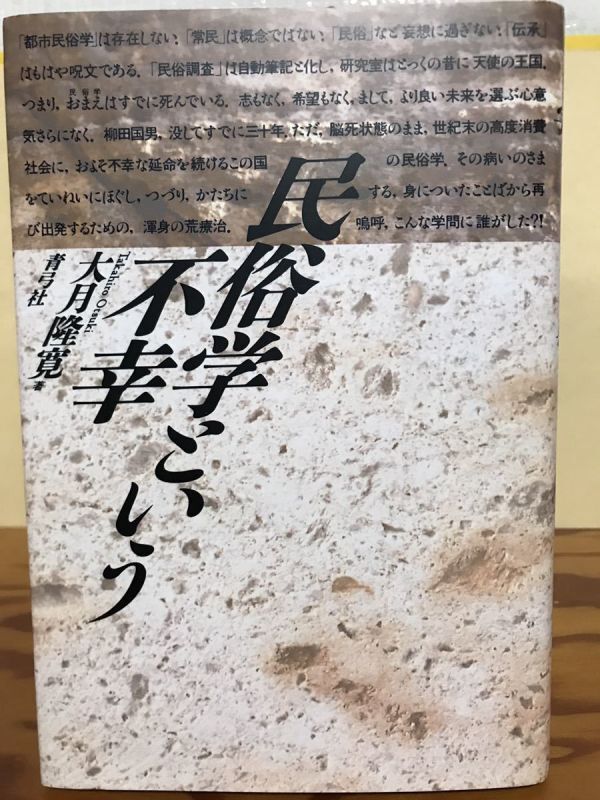 「都市民俗学」は存在しない.「常民」は概念ではない.「民俗」など妄想に過ぎない.「伝承」
はもはや呪文である.「民俗調査」は自動筆記と化し, 研究室はとっくの昔に 天使の王国.
民俗学
つまり, おまえはすでに死んでいる. 志もなく, 希望もなく, まして, より良い未来を選ぶ心意
気さらになく. 柳田国男, 没してすでに三十年. ただ, 脳死状態のまま, 世紀末の高度消費
社会に, およそ不幸な延命を続けるこの国の民俗学. その病いのさま
をていねいにほぐし, つづり, かたちにする, 身についたことばから再
び出発するための, 渾身の荒療治. 嗚呼, こんな学問に 誰がした?!
民俗学という
不幸
大月隆寛 著
Takahiro Otsuki
青弓社